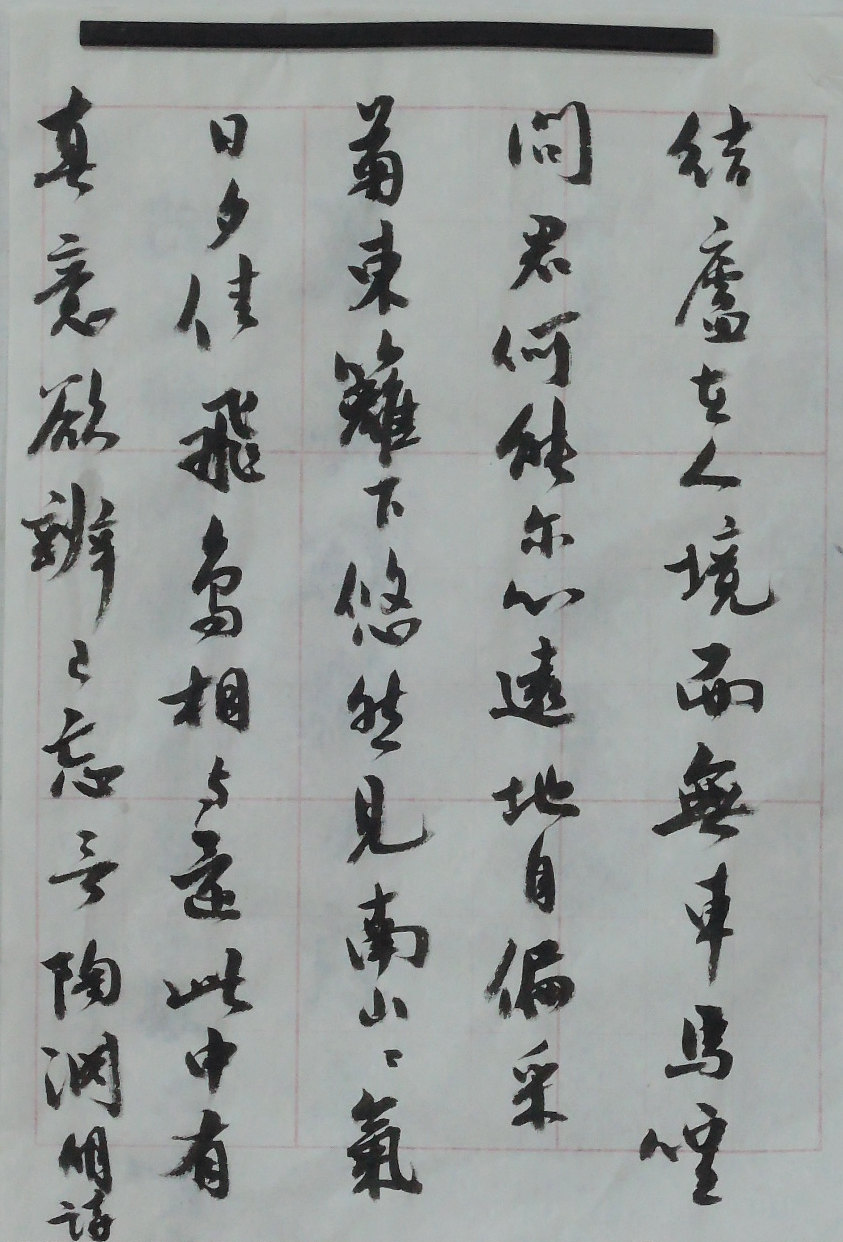 結廬在人境而無車馬喧
問君何能尔心遠地自偏采
菊東籬下悠然見南山〻氣
日夕佳飛鳥相与還此中有
真意欲辨〻忘言陶渊明詩